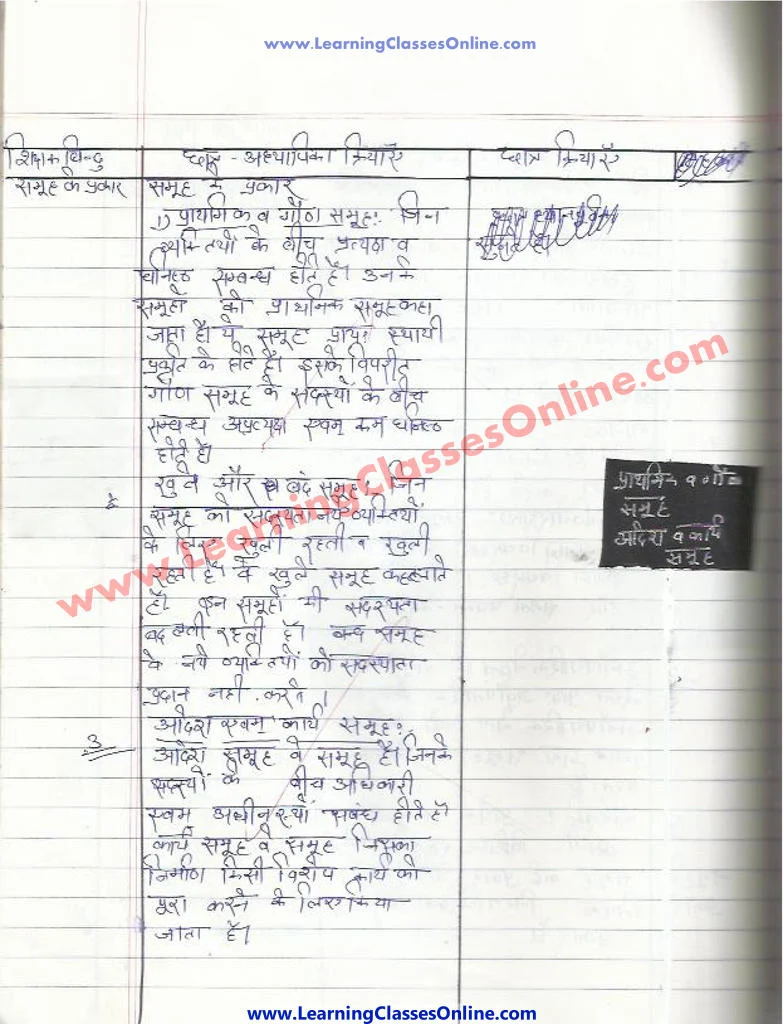 www.LearningClassesOnline.com
शिक्षक बिन्दु छात्र - अध्यापिका क्रियाएँ छात्र क्रियाएँ
समूह के प्रकार समूह के प्रकार
1) प्राथमिक व गौण समूह: जिन
व्यक्तियों के बीच प्रत्यक्ष व
घनिष्ठ सम्बन्ध होते है। उनके
समूहों को प्राथमिक समूह कहा
जाता है। ये समूह प्राय: स्थायी
प्रकृति के होते है। इसके विपरीत
गौण समूह के सदस्यों के बीच
सम्बन्ध अप्रत्यक्ष एवम् कम घनिष्ठ
होते है।
खुले और बंद समूह: जिन
समूह की सदस्यता नये व्यक्तियों
के लिए खुली रहती व खुली
रहती है। वे खुले समूह कहलाते
है। इन समूहों की सदस्यता
बदलती रहती है। बन्द समूह
के नये व्यक्तियों को सदस्याता
प्रदान नही करते।
आदेश एवम् कार्य समूह:
3 आदेश समूह वे समूह है। जिनके
सदस्यों के बीच अधिकारी
एवम अधीनस्थों सबंध होते है।
कार्य समूह वे समूह जिसका
निर्माण किसी विशेष कार्य को
पूरा करने के लिए किया
जाता है।
प्राथमिक व गौण
समूह
आदेश व कार्य
समूह
www.LearningClassesOnline.com
www.LearningClassesOnline.com